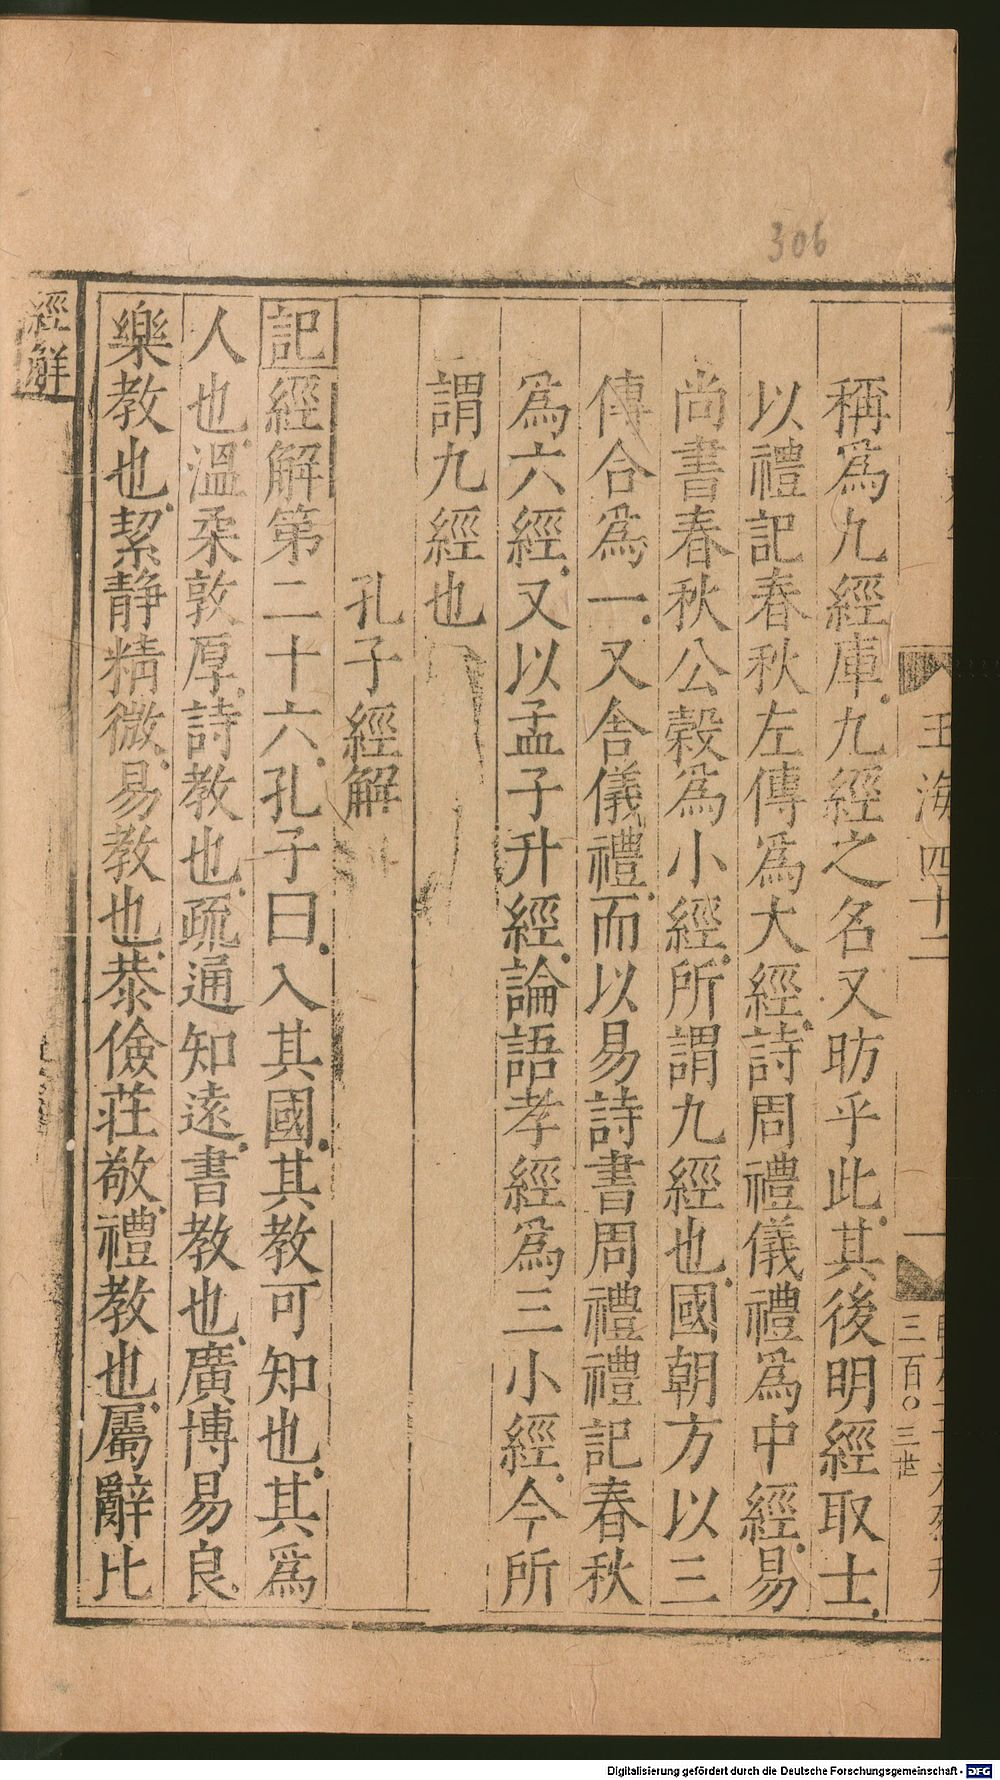 306
玉海四十二
一
三百〇三
稱爲九經庫九經之名又昉乎此其後明經取士
以禮記春秋左傳爲大經詩周禮儀禮爲中經易
尚書春秋公穀爲小經所謂九經也國朝方以三
傳合爲一又舍儀禮而以易詩書周禮禮記春秋
爲六經又以孟子升經論語孝經爲三小經今所
謂九經也
孔子經解
記經解第二十六孔子曰入其國其教可知也其爲
人也溫柔敦厚詩教也疏通知遠書教也廣博易良
樂教也絜靜精微易教也恭儉莊敬禮教也屬辭比
經解
Digitalisierung gefördert durch die Deutsche Forschungsgemeinschaft - DFG